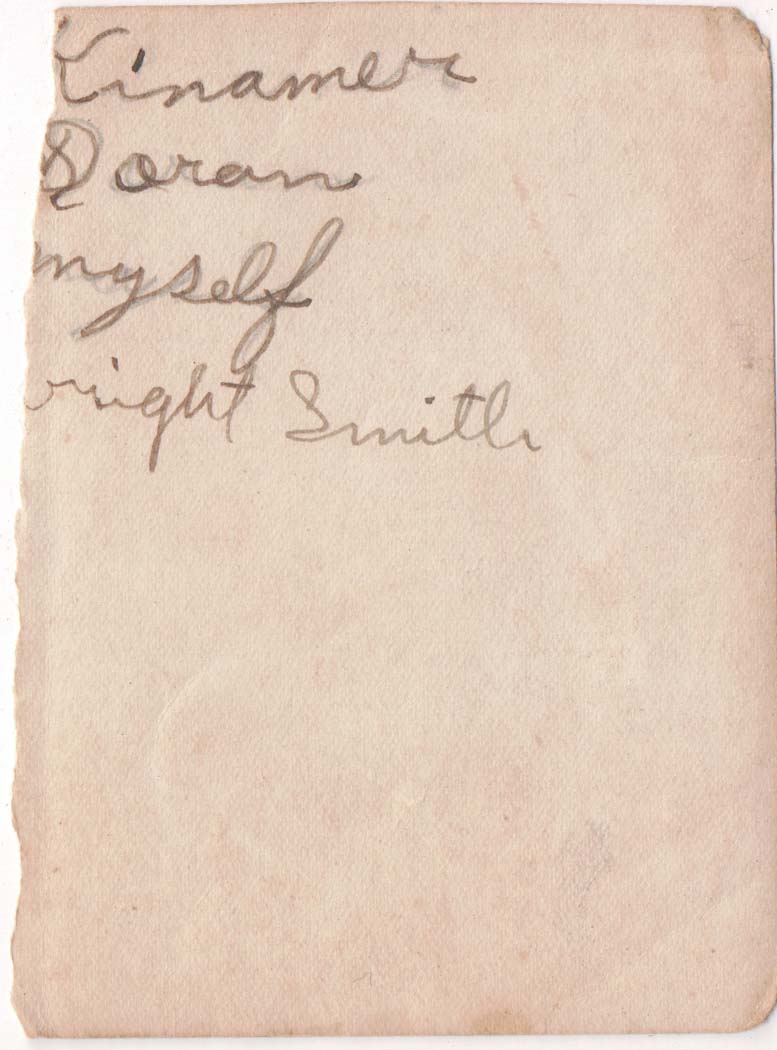 Kinamer
Doran
myself
wright Smith